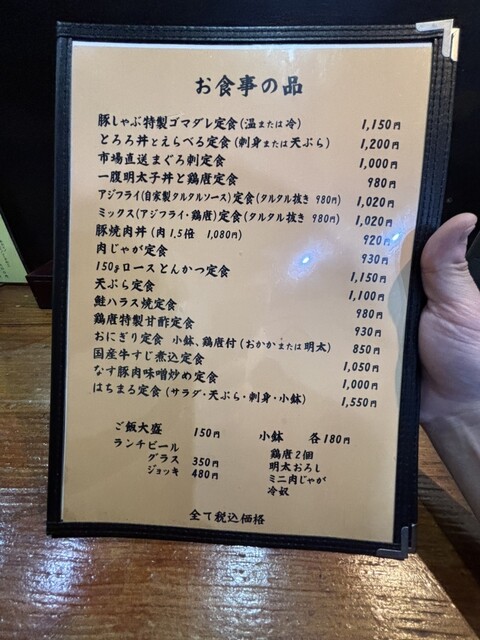 お食事の品
豚しゃぶ特製ゴマダレ定食(温または冷) 1,150円
とろろ丼とえらべる定食(刺身または天ぷら) 1,200円
市場直送まぐろ刺定食 1,000円
一腹明太子丼と鶏唐定食 980円
アジフライ(自家製タルタルソース)定食(タルタル抜き 980円) 1,020円
ミックス(アジフライ・鶏唐)定食(タルタル抜き 980円) 1,020円
豚焼肉丼(肉1.5倍 1,080円) 920円
肉じゃが定食 930円
150gロースとんかつ定食 1,150円
天ぷら定食 1,100円
鮭ハラス焼定食 980円
鶏唐特製甘酢定食 930円
おにぎり定食 小鉢、鶏唐付(おかかまたは明太) 850円
国産牛すじ煮込定食 1,050円
なす豚肉味噌炒め定食 1,000円
はちまる定食(サラダ・天ぷら・刺身・小鉢) 1,550円
ご飯大盛 150円
ランチビール
グラス 350円
ジョッキ 480円
小鉢 各180円
鶏唐2個
明太おろし
ミニ肉じゃが
冷奴
全て税込価格